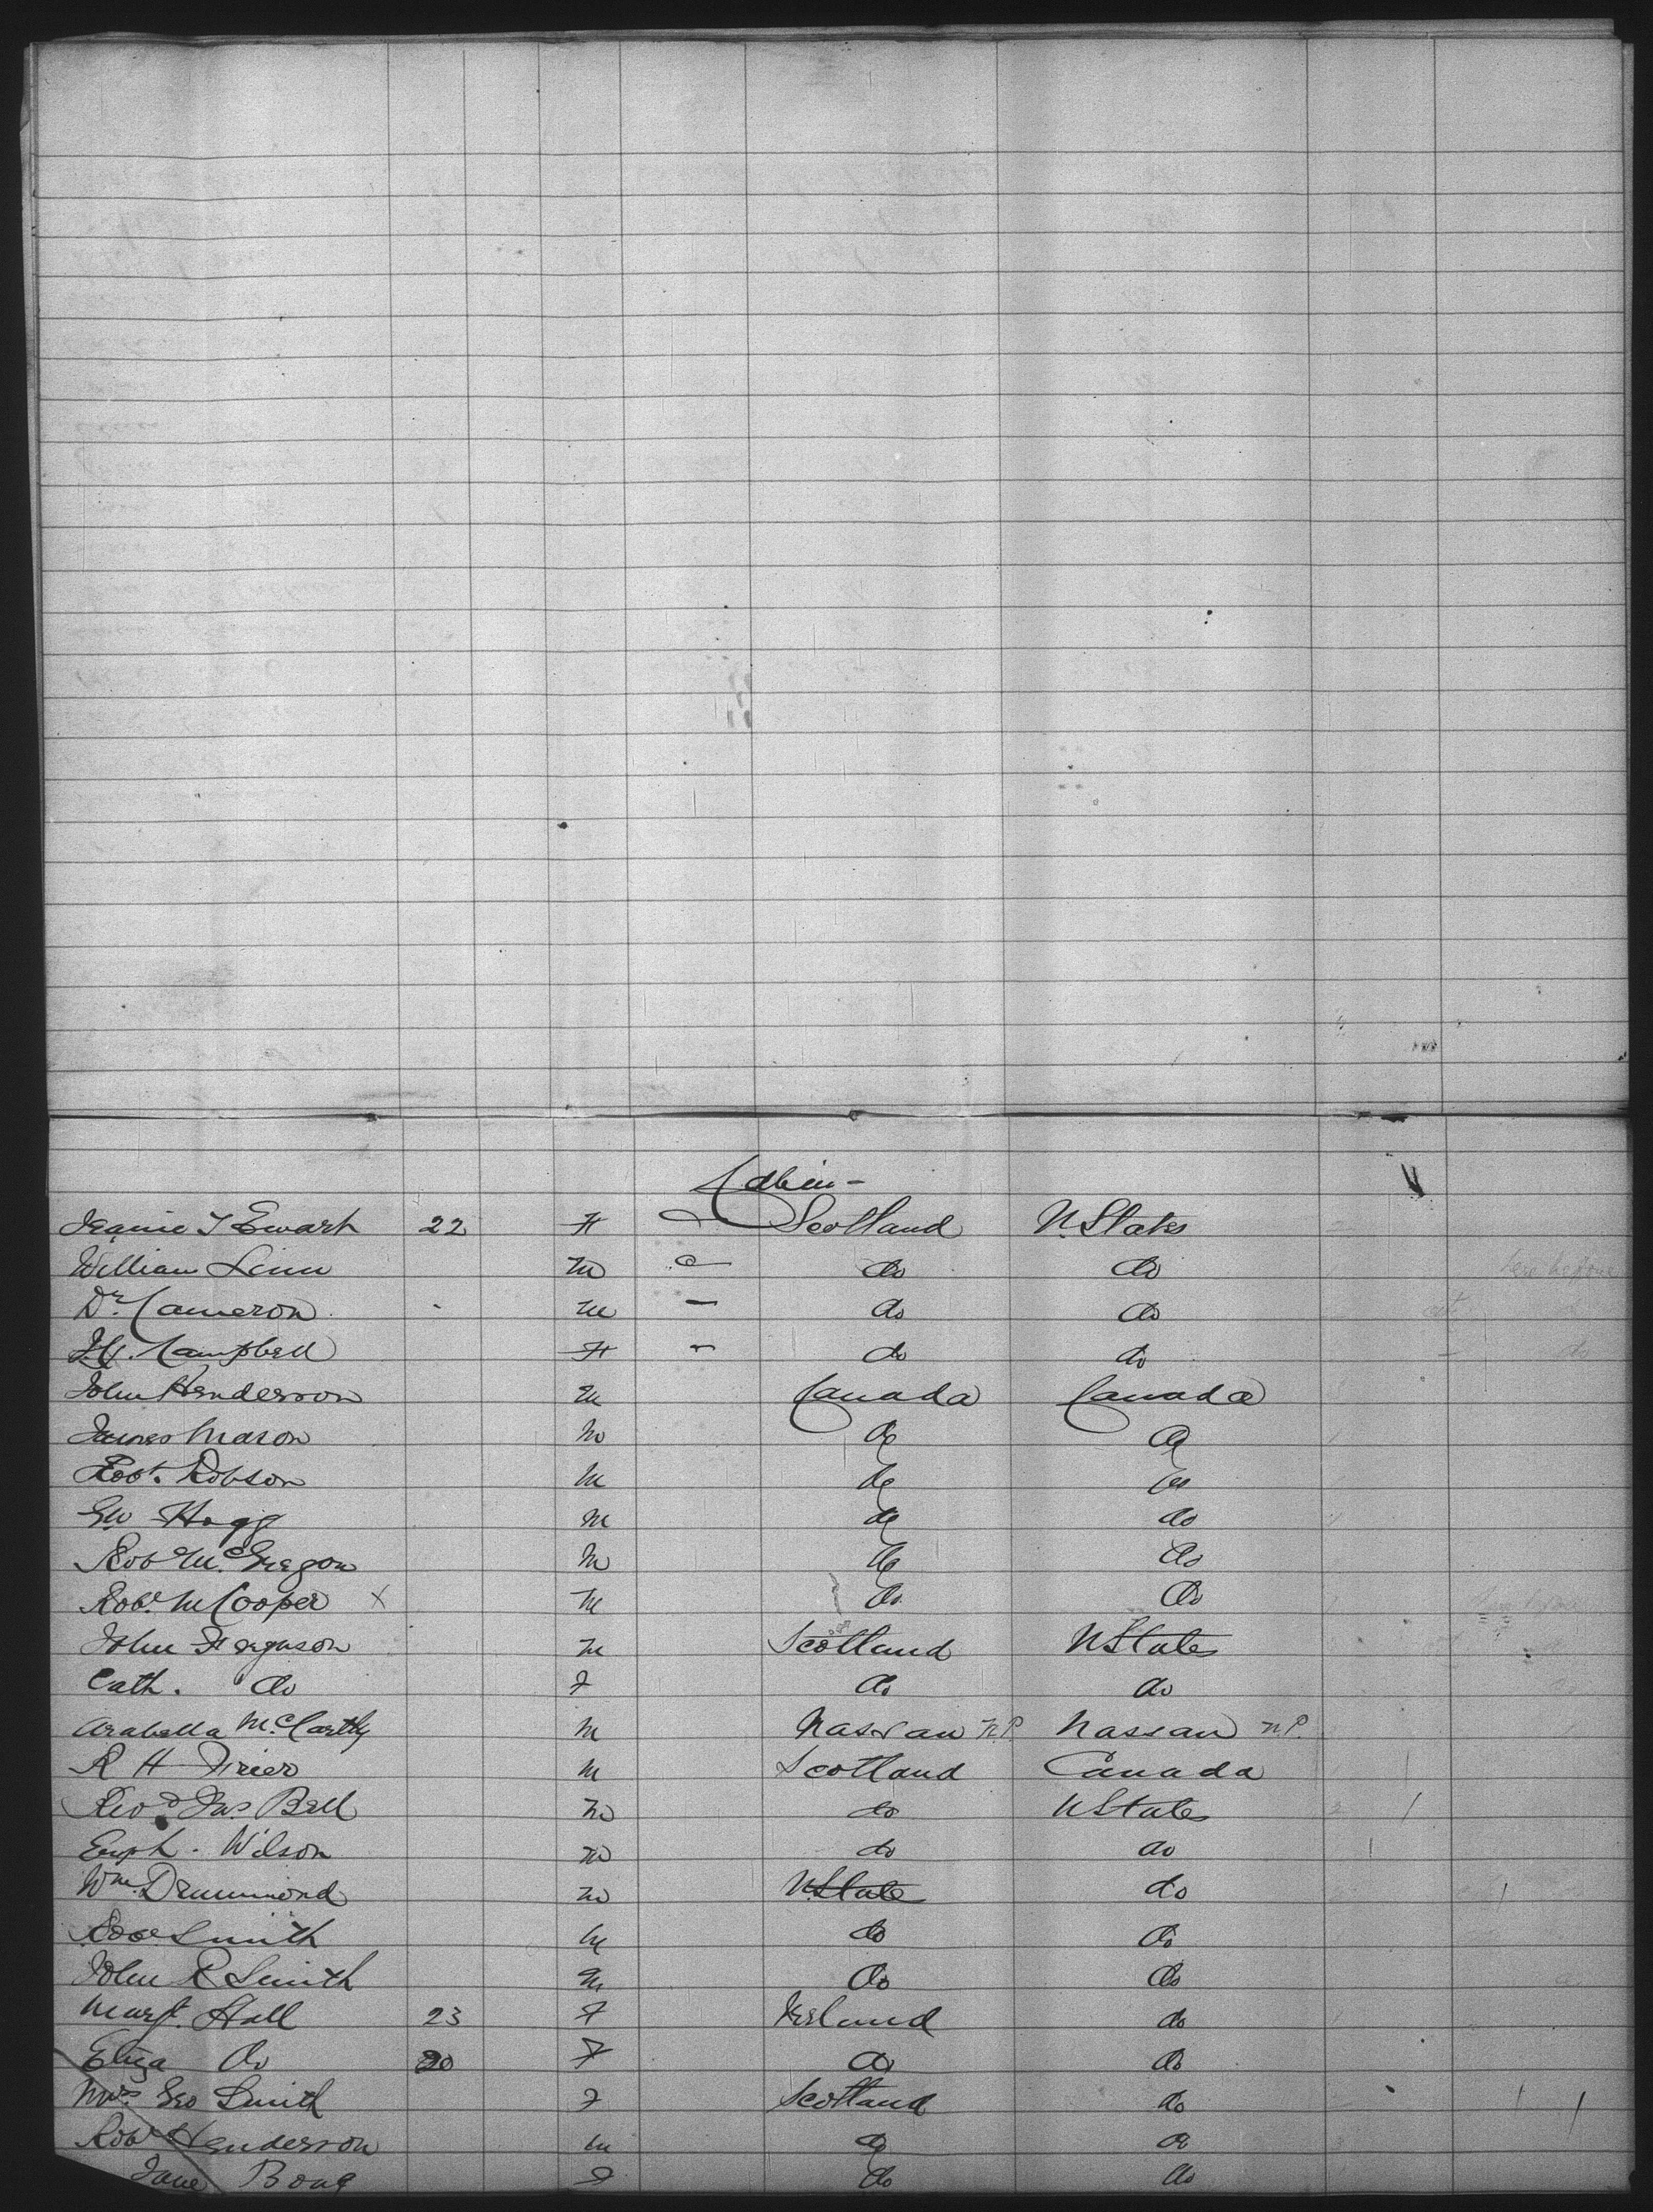 Cabin -
Jeanie T Ewart 22 F Scotland U. States
William Linn M do do
Dr. Cameron M do do
Campbell F do do
John Henderson M Canada Canada
James Mason M do do
Robt. Robson M do do
Hogg M do do
Robt McGregor M do do
Robt. M Cooper X M do do
John Ferguson M Scotland U States
Cath. do F do do
Arabella McCarthy M Nassau N.P. Nassau N.P.
R H M Scotland Canada
Revd Jas. Bell M do U States
Euph. Wilson M do do
Wm. Drummond M U. State do
Robt Smith M do do
John R Smith M do do
Margt. Hall 23 F Ireland do
Eliza do 20 F do do
Mrs. Geo Smith F Scotland do
Robt Henderson M do do
Jane F do do